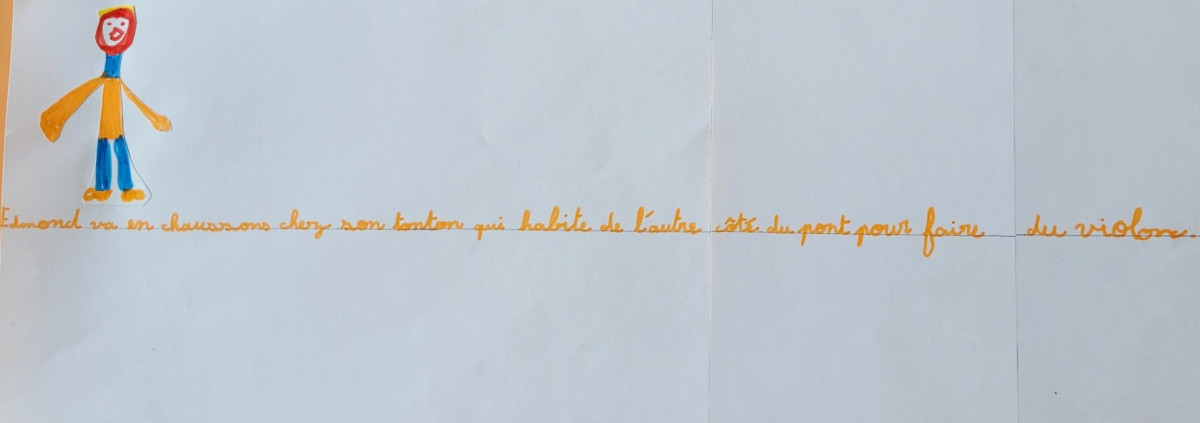 Edmond va en chaussons chez son tonton qui habite de l'autre côté du pont pour faire du violon.